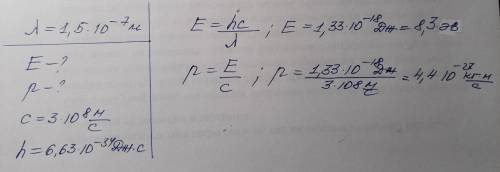 λ = 1,5·10⁻⁷м
E - ?
p - ?
c = 3·10⁸ м/с
h = 6,63·10⁻³⁴Дж·с
E = hc/λ ; E = 1,33·10⁻¹⁸Дж = 8,3 эв
p = E/c ; p = 1,33·10⁻¹⁸Дж / 3·10⁸ м/с = 4,4·10⁻²⁷ кг м/с